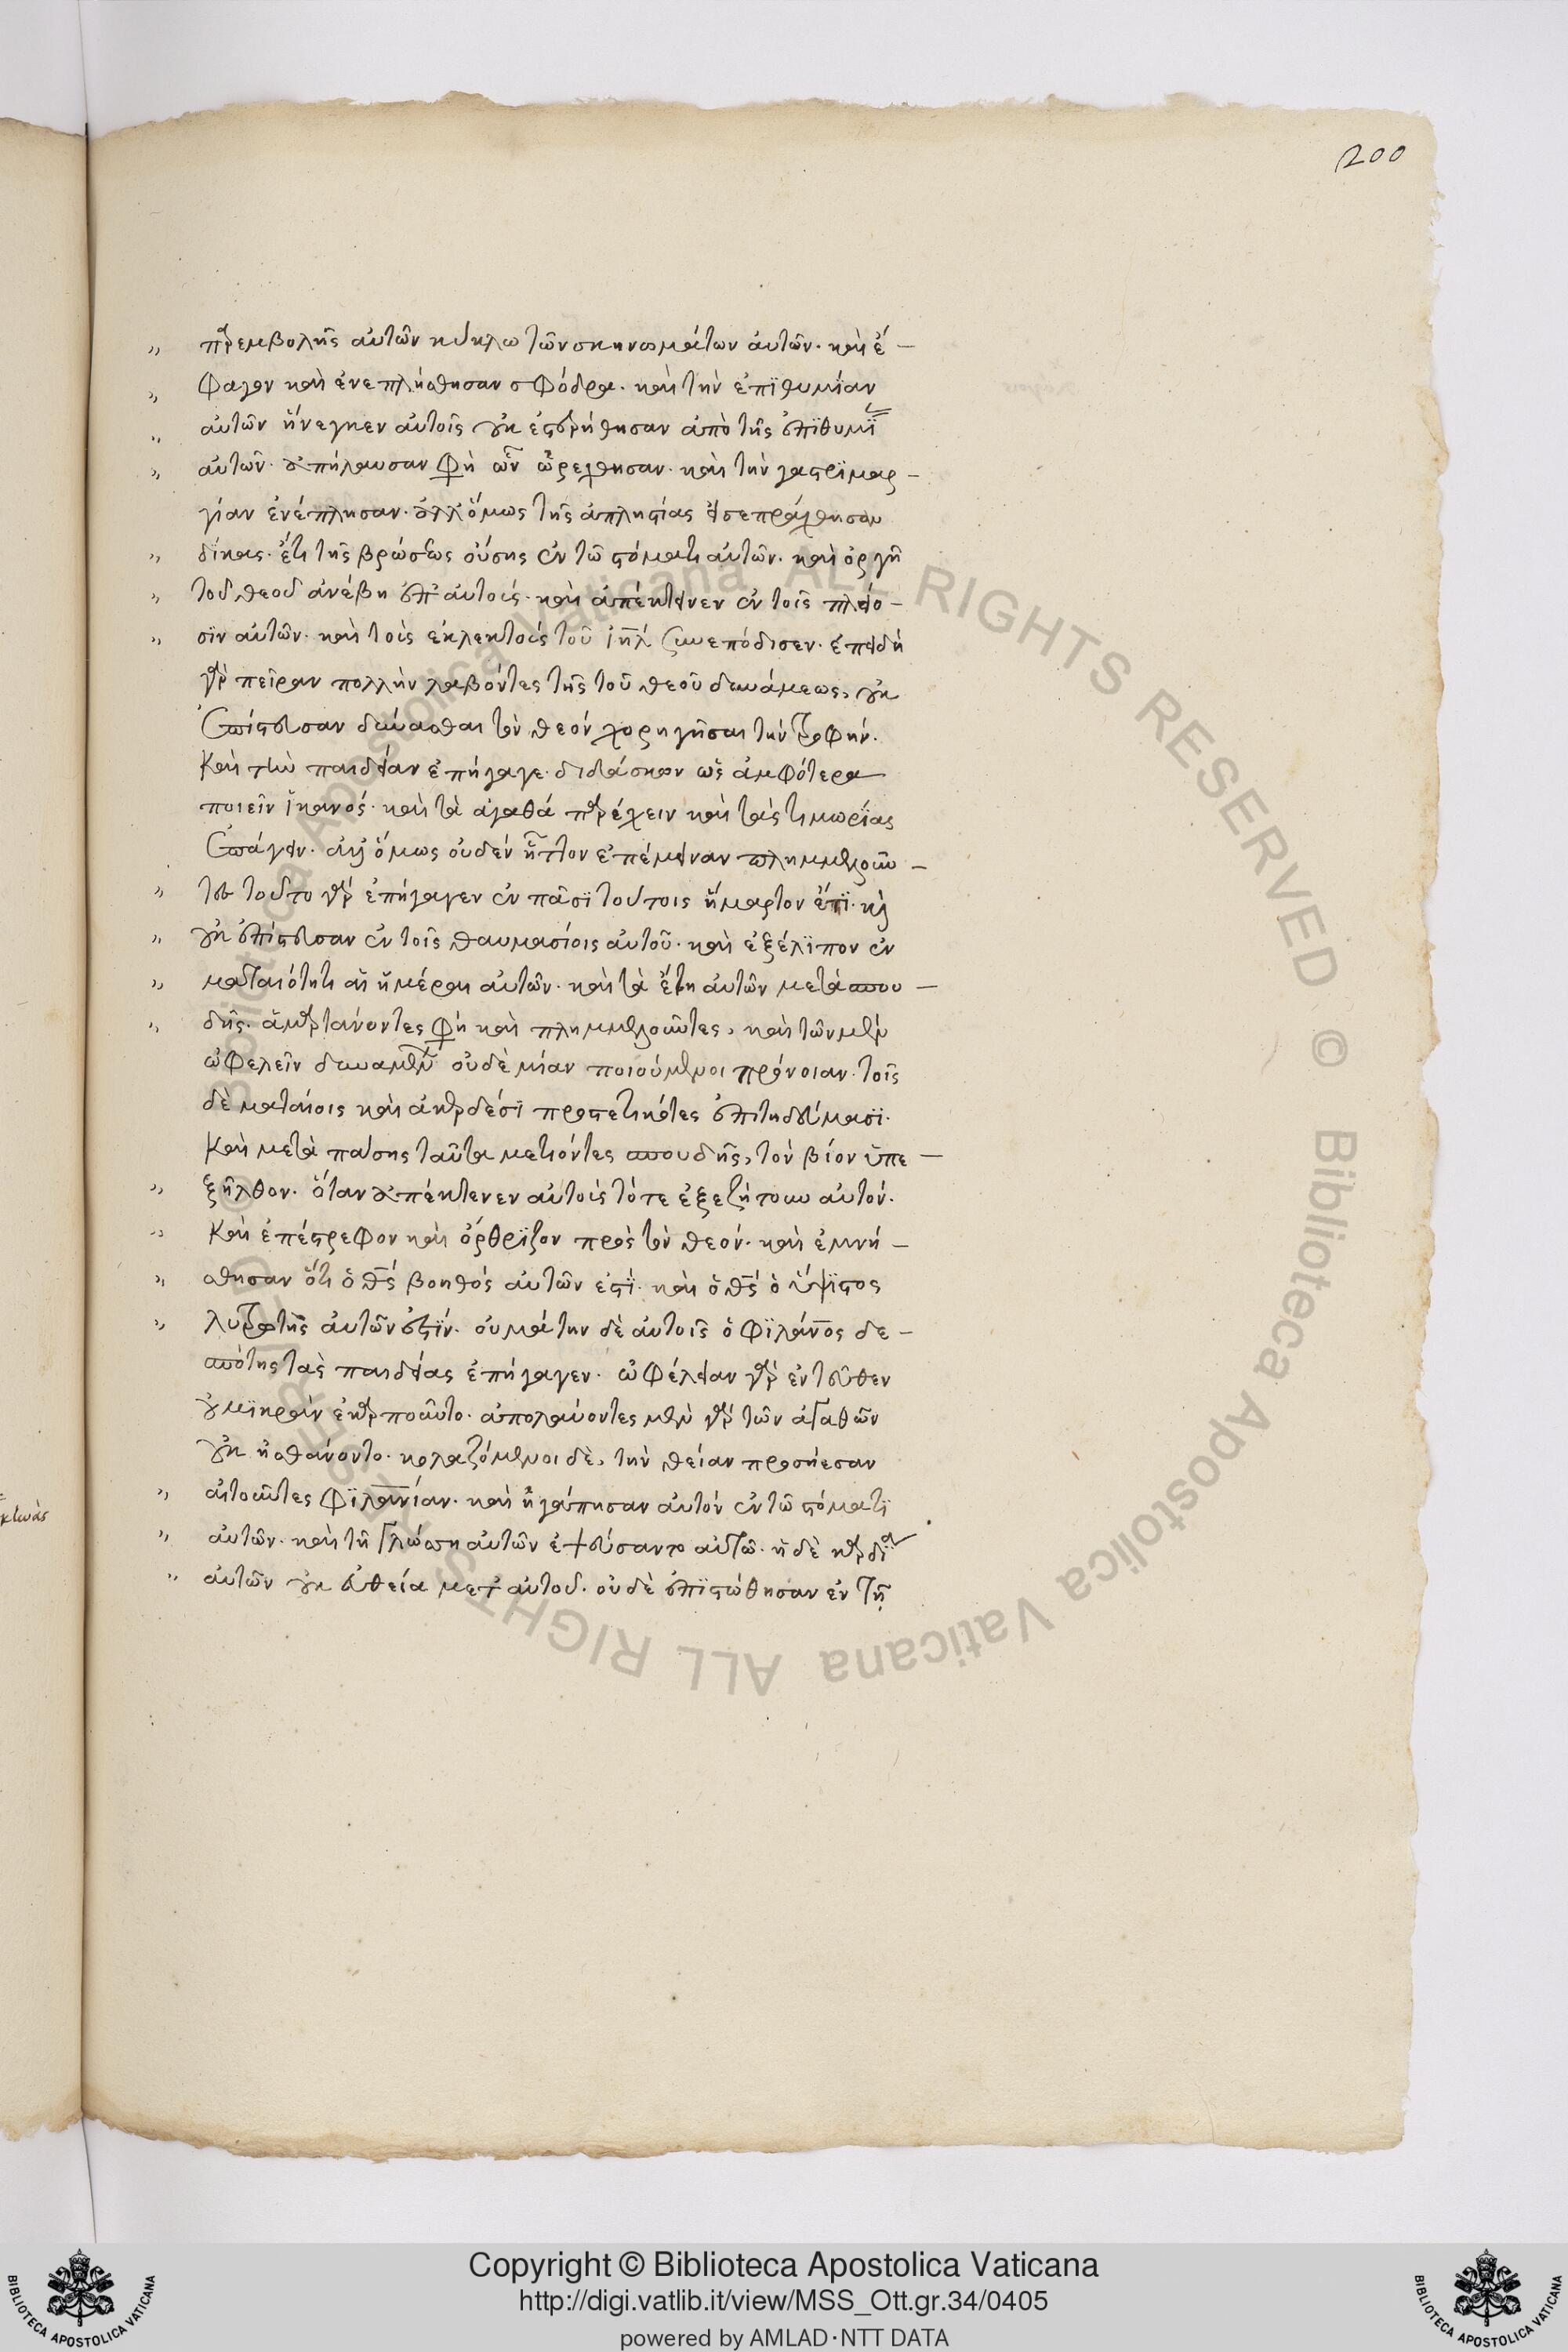 200
παρεμβολῆς αὐτῶν κύκλω τῶν σκηνωμάτων αὐτῶν· καὶ ἔ-
φαγον καὶ ἐνεπλήσθησαν σφόδρα· καὶ τὴν ἐπϊθυμίαν
αὐτῶν ἤνεγκεν αὐτοῖς οὐκ ἐστερήθησαν ἀπὸ τῆς ἐπϊθυμΐας
αὐτῶν· ἀπήλαυσαν φη ὧν ὠρέχθησαν· καὶ τὴν γαστρϊμαρ-
γίαν ἐνέπλησαν· ἀλλ' ὅμως τῆς ἀπληστίας εἰσεπράχθησαν
δίκας· ἔτι τῆς βρώσεως οὔσης ἐν τῶ στόματι αὐτῶν· καὶ ὀργὴ
τοῦ θεοῦ ἀνέβη ἐπ' αὐτοὺς· καὶ ἀπέκτεινεν ἐν τοῖς πλείο-
σϊν αὐτῶν· καὶ τοὺς ἐκλεκτοὺς τοῦ ἰηλ συνεπόδισεν· ἐπειδὴ
γὰρ πεῖραν πολλὴν λαβόντες τῆς τοῦ θεοῦ δυνάμεως, οὐκ
ἐπίστευσαν δύνασθαι τὸν θεὸν χορηγῆσαι τὴν τροφήν.
Καὶ τὴν παιδείαν ἐπήγαγε· διδάσκων ὡς ἀμφότερα
ποιεῖν ἱκανὸς· καὶ τὰ ἀγαθὰ παρέχειν καὶ τὰς τιμωρΐας
ἐπάγειν· ἀλλ' ὅμως οὐδὲν ἧττον ἐπέμειναν πλημμελοῦν-
τες τοῦτο γὰρ ἐπήγαγεν ἐν πᾶσϊ τούτοις ἥμαρτον ἔτϊ· καὶ
οὐκ ἐπίστευσαν ἐν τοῖς θαυμασίοις αὐτοῦ· καὶ ἐξέλϊπον ἐν
ματαιότητι αἱ ἡμέραι αὐτῶν· καὶ τὰ ἔτη αὐτῶν μετὰ σπου-
δῆς· ἁμαρτάνοντες φη καὶ πλημμελοῦντες, καὶ τῶν μὲν
ὠφελεῖν δυναμένων οὐδὲ μίαν ποιούμενοι πρόνοιαν· τοῖς
δὲ ματαίοις καὶ ἀκερδέσϊ προστετηκότες ἐπιτηδεύμασϊ·
Καὶ μετὰ πάσης ταῦτα μετιόντες σπουδῆς, τὸν βίον ὑπε-
ξῆλθον· ὅταν ἀπέκτενεν αὐτοὺς τότε ἐξεζήτουν αὐτόν.
Καὶ ἐπέστρεφον καὶ ὄρθρϊζον πρὸς τὸν θεόν· καὶ ἐμνή-
σθησαν ὅτι ὁ θς βοηθὸς αὐτῶν ἐστϊ· καὶ ὁ θς ὁ ὕψϊστος
λυτρωτὴς αὐτῶν ἐστϊν· οὐ μάτην δὲ αὐτοῖς ὁ φϊλανος δε-
σπότης τὰς παιδείας ἐπήγαγεν· ὠφέλειαν γὰρ ἐντεῦθεν
οὐ μϊκρὰν ἐκαρποῦντο· ἀπολαύοντες μὲν γὰρ τῶν ἀγαθῶν
οὐκ ἠσθάνοντο· κολαζόμενοι δὲ, τὴν θείαν προσήεσαν
αἰτοῦντες φϊλανίαν· καὶ ἠγάπησαν αὐτὸν ἐν τῶ στόματϊ
αὐτῶν· καὶ τῆ γλώσση αὐτῶν ἐψεύσαντο αὐτῶ· ἡ δὲ καρδΐα
αὐτῶν οὐκ εὐθεία μετ' αὐτοῦ· οὐδὲ ἐπϊστώθησαν ἐν τῆ
Copyright © Biblioteca Apostolica Vaticana
http://digi.vatlib.it/view/MSS_Ott.gr.34/0405
powered by AMLAD·NTT DATA